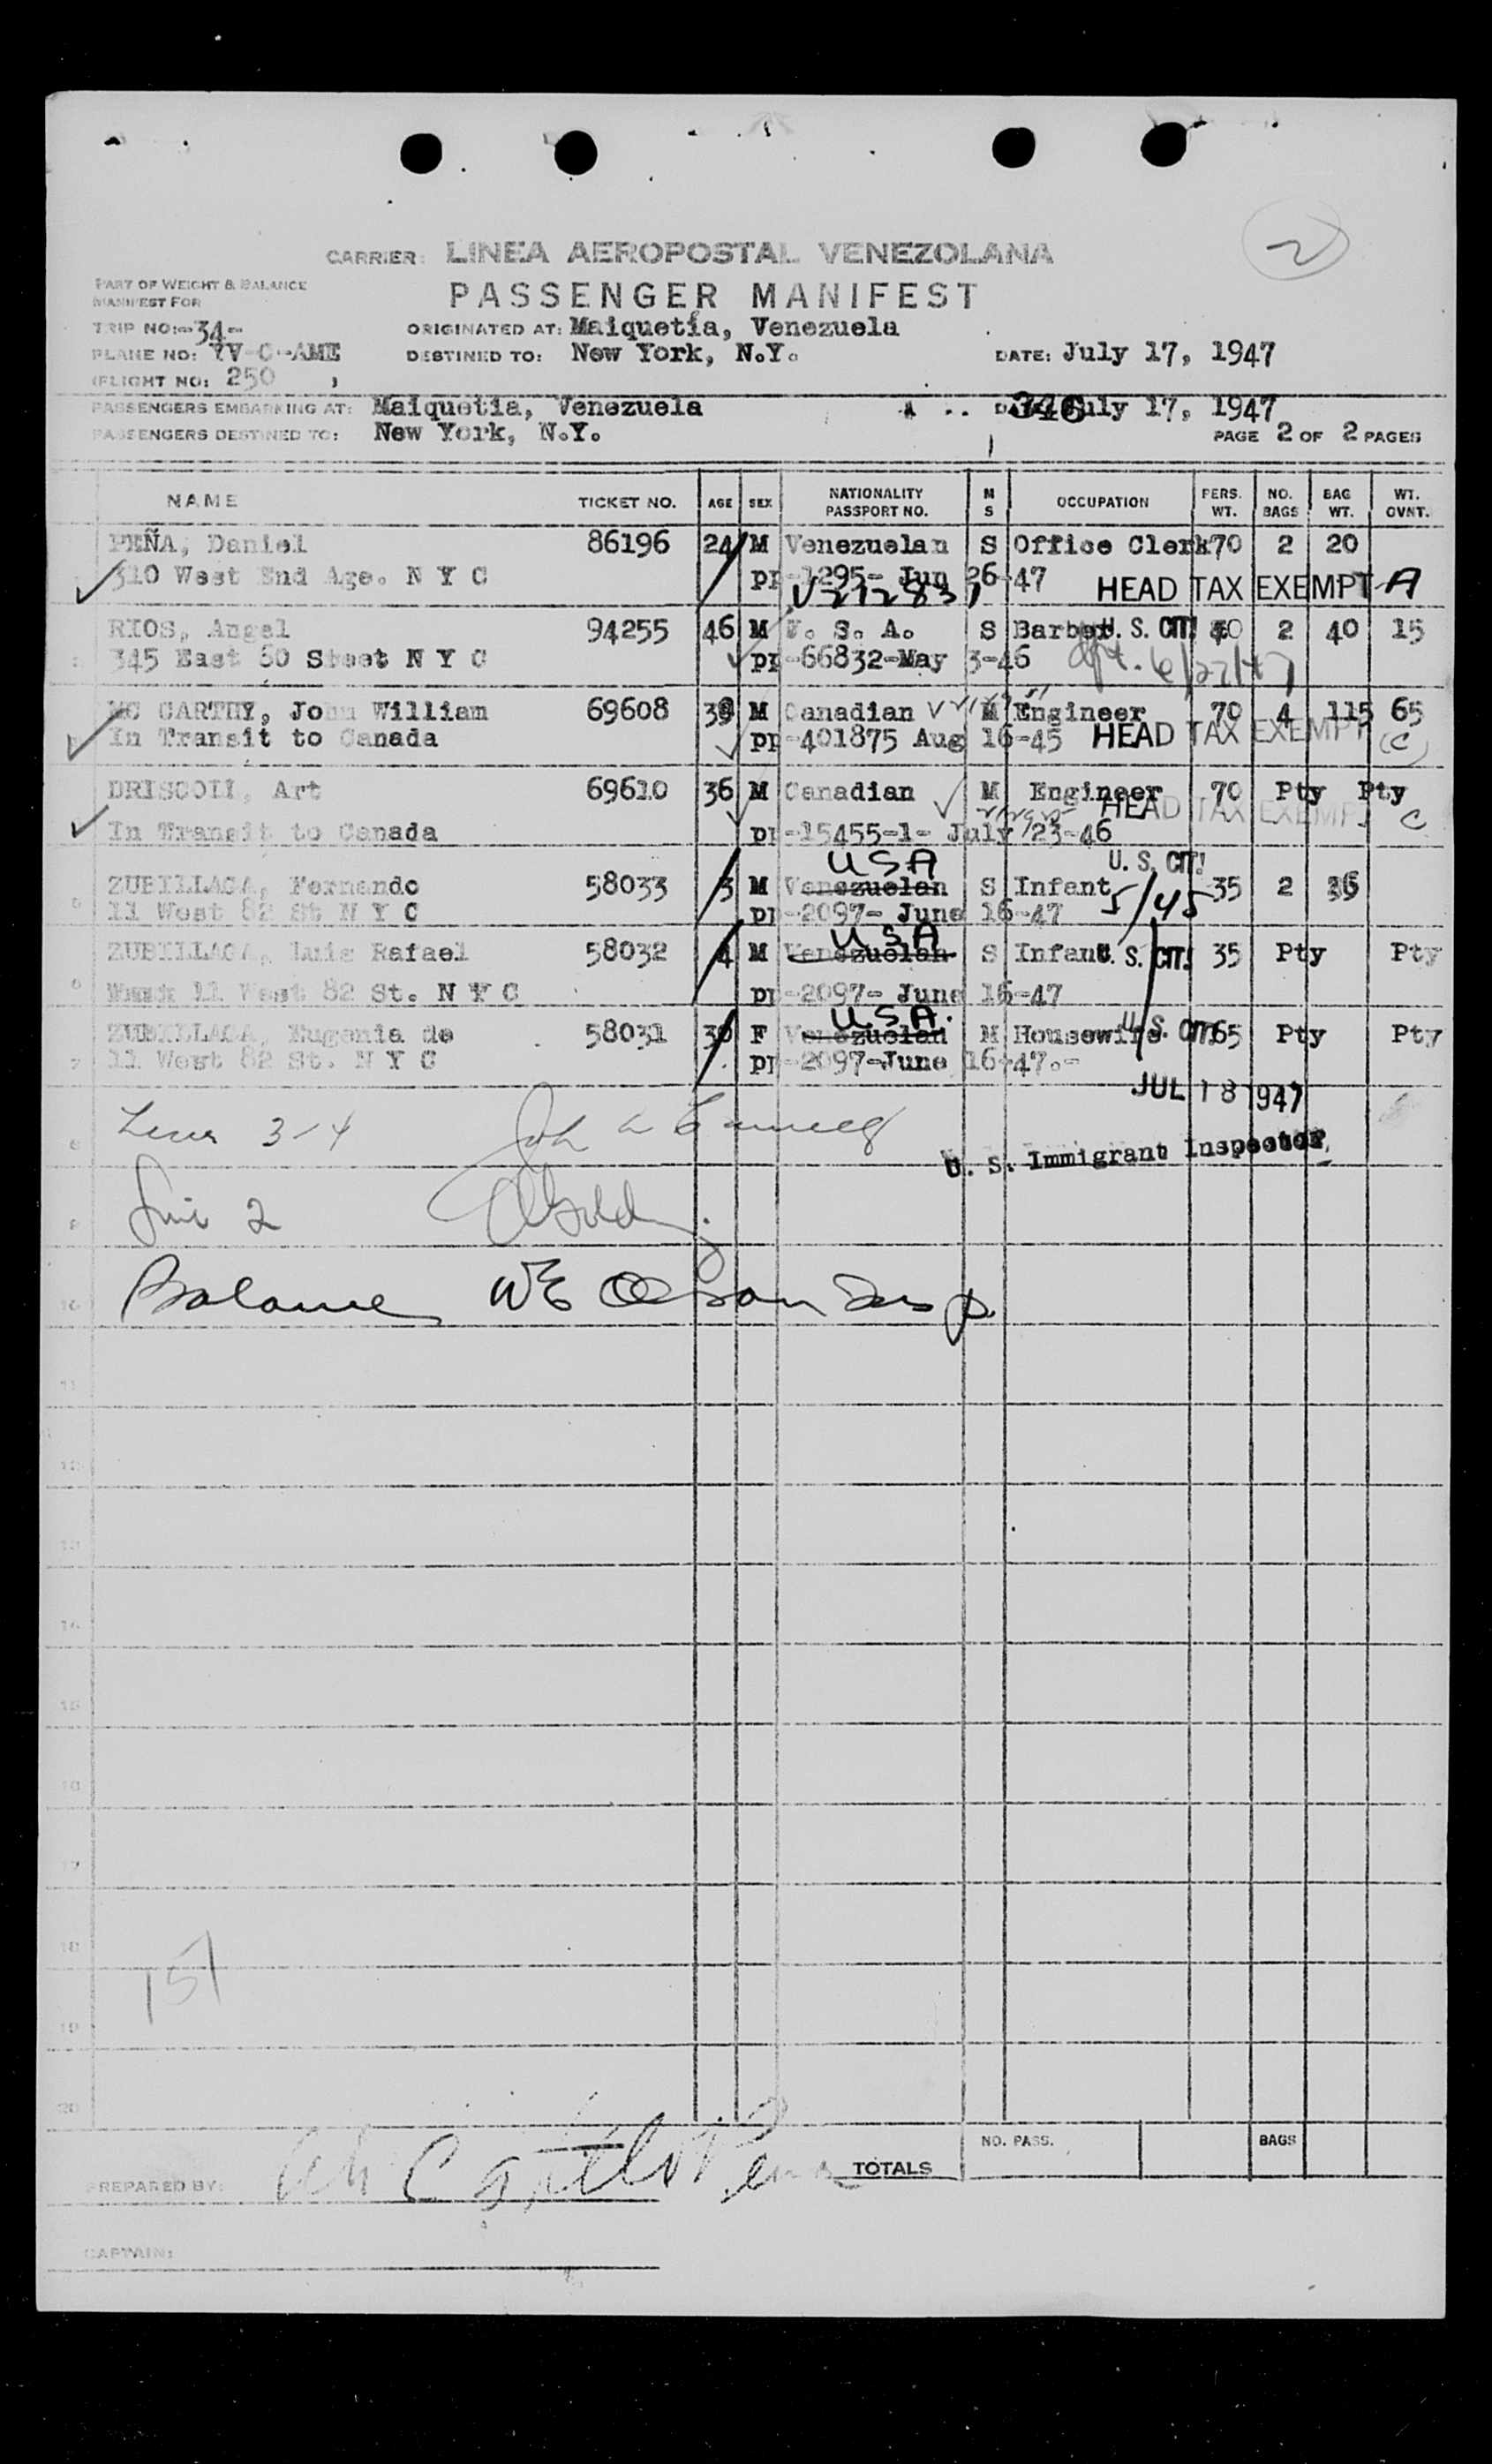 2
CARRIER: LINEA AEROPOSTAL VENEZOLANA
PART OF WEIGHT & BALANCE
MANIFEST FOR
PASSENGER MANIFEST
TRIP NO:-34-
ORIGINATED AT: Maiquetía, Venezuela
PLANE NO: YV-C-AME
DESTINED TO: New York, N.Y.
DATE: July 17, 1947
(FLIGHT NO: 250 )
PASSENGERS EMBARKING AT: Maiquetia, Venezuela 346 July 17, 1947
PASSENGERS DESTINED TO: New York, N.Y.
PAGE 2 OF 2 PAGES
NAME TICKET NO. AGE SEX NATIONALITY PASSPORT NO. M S OCCUPATION PERS. WT. NO. BAGS BAG WT. WT. OVNT.
PEÑA, Daniel 86196 24 M Venezuelan S Office Clerk 70 2 20
310 West End Age. N Y C pp-1295- Jun 26-47 HEAD TAX EXEMPT A
V212831
RIOS, Angel 94255 46 M U. S. A. S Barber U. S. CIT! 2 40 15
345 East 60 Steet N Y C pp-66832-May 3-46 6/27/47
MC CARTHY, John William 69608 39 M Canadian M Engineer 70 4 115 65
In Transit to Canada pp-401875 Aug 16-45 HEAD TAX EXEMPT (C)
DRISCOLL, Art 69610 36 M Canadian M Engineer 70 Pty Pty
HEAD TAX EXEMPT C
In Transit to Canada pp-15455-1- July 23-46
USA U. S. CIT!
ZUBILLAGA, Fernando 58033 3 M Venezuelan S Infant 35 2
11 West 82 St N Y C pp-2097- June 16-47 5/45
USA
ZUBILLAGA, Luis Rafael 58032 4 M Venezuelan S Infant U. S. CIT! 35 Pty Pty
11 West 82 St. N Y C pp-2097- June 16-47
USA.
ZUBILLAGA, Eugenia de 58031 30 F Venezuelan M Housewife U. S. CIT! 65 Pty Pty
11 West 82 St. N Y C pp-2097-June 16-47.-
JUL 18 1947
3-4
U. S. Immigrant Inspector
2
Balance
151
NO. PASS. BAGS
TOTALS
PREPARED BY:
CAPTAIN: